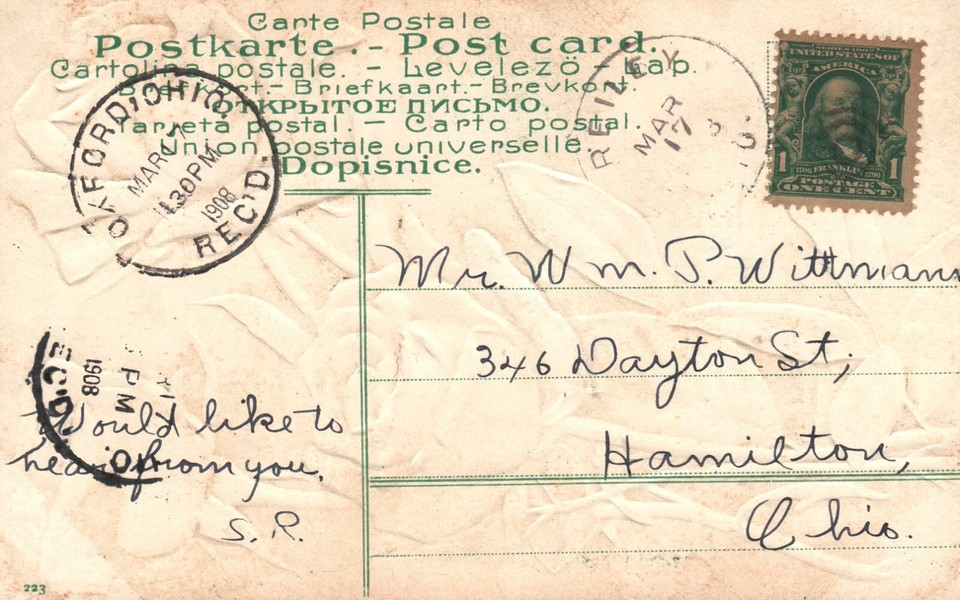 Carte Postale
Postkarte. - Post card.
Cartolina postale. - Levelező - Lap.
Brefkort. - Briefkaart. - Brevkort.
ОТКРЫТОЕ ПИСЬМО.
Tarjeta postal. - Carto postal.
Union postale universelle.
Dopisnice.
OXFORD, OHIO
MAR 7
1130 PM
1908
REC'D.
REILEY
MAR
7
O.
SERIES 1902
UNITED STATES OF
AMERICA
1 1
1706 FRANKLIN 1790
POSTAGE
ONE CENT
Mr. Wm. P. Wittmann
346 Dayton St,
Hamilton,
Ohio.
PM
1908
EC'D.
O
Would like to
hear from you.
S.R.
223